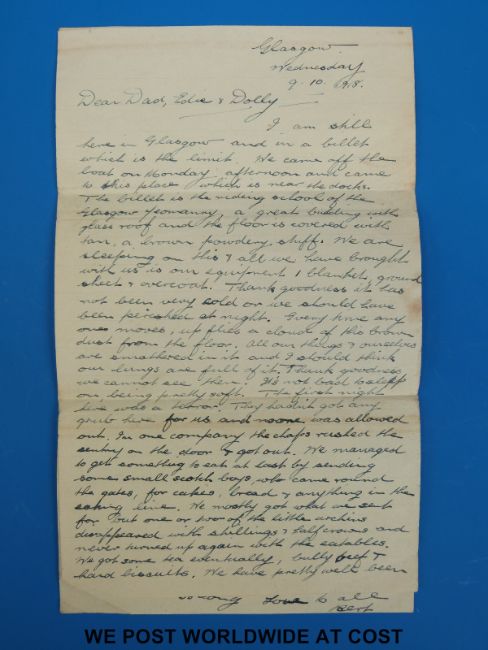 Glasgow.
Wednesday
9-10. 1918.
Dear Dad, Edie & Dolly
I am still
here in Glasgow and in a billet
which is the limit. We came off the
boat on Monday afternoon and came
to this place which is near the docks.
The billet is the riding school of the
Glasgow Yeomanry, a great building with
glass roof and the floor is covered with
tan, a brown powdery stuff. We are
sleeping on this & all we have brought
with us is our equipment 1 blanket, ground
sheet & overcoat. Thank goodness it has
not been very cold or we should have
been perished at night. Every time any
one moves, up flies a cloud of this brown
dust from the floor. All our things & ourselves
are smothered in it and I should think
our lungs are full of it. Thank goodness
we cannot see them. It's not bad to sleep
on being pretty soft. The first night
here was a terror. They hadn't got any
grub here for us and no one was allowed
out. In one company the chaps rushed the
sentry on the door & got out. We managed
to get something to eat at last by sending
some small scotch boys, who came round
the gates, for cakes, bread & anything in the
eating line. We mostly got what we sent
for but one or two of the little urchins
disappeared with shillings & half crowns and
never turned up again with the eatables.
We got some tea eventually, bully beef &
hard biscuits. We have pretty well been
so long Love to all
Bert
WE POST WORLDWIDE AT COST